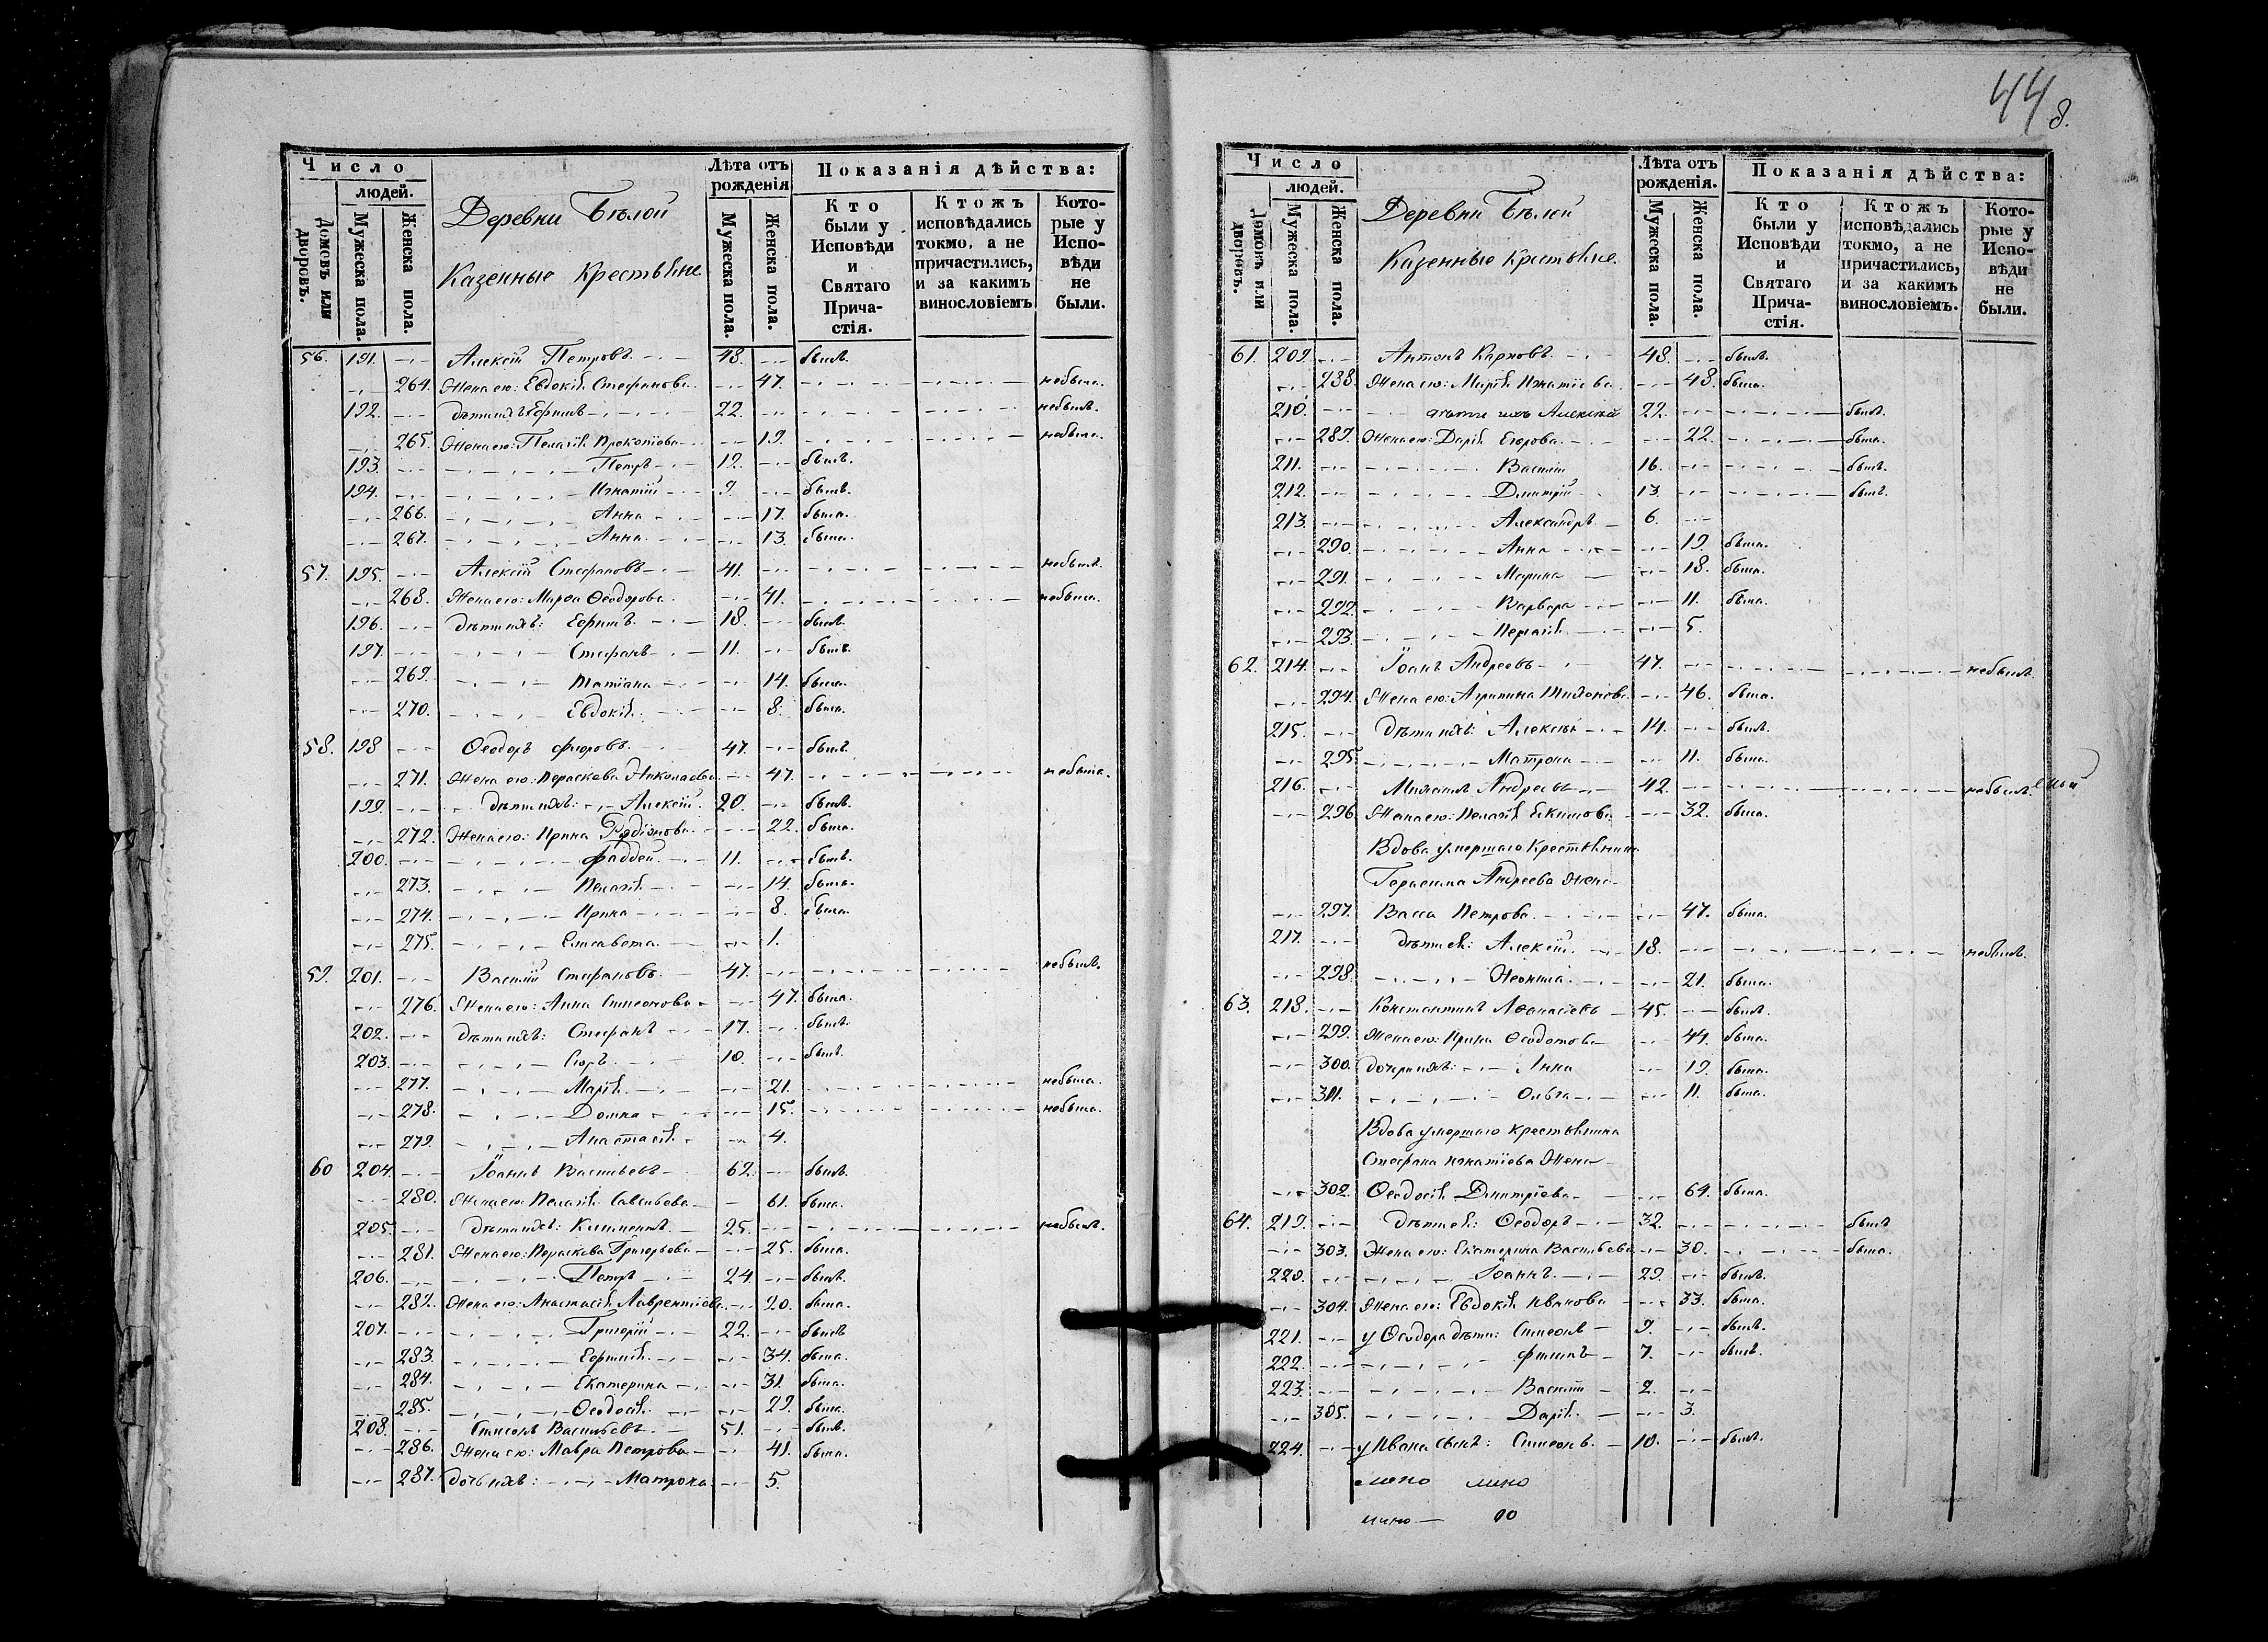 Число
людей.
Домовъ или дворовъ.
Мужеска пола.
Женска пола.
Деревни Бѣлой
Казенные Крестьяне
Лѣта отъ рожденія
Мужеска пола.
Женска пола.
Показанія дѣйства:
Кто были у Исповѣди и Святаго Причастія.
Ктожъ исповѣдались токмо, а не причастились, и за какимъ винословіемъ
Которые у Исповѣди не были.
56. 191. Алексій Петровъ 48. былъ.
264. Жена его: Евдокія Стефанова 47. небыла.
192. дѣти ихъ: Ефимъ 22. небылъ.
265. Жена его: Пелагія Прокопіева 19. небыла.
193. Петръ 12. былъ.
194. Игнатій 9. былъ.
266. Анна 17. была.
267. Анна 13. была.
57. 195. Алексій Стефановъ 41. небылъ.
268. Жена его: Марѳа Ѳеодорова 41. небыла.
196. дѣти ихъ: Ефимъ 18. былъ.
197. Стефанъ 11. былъ.
269. Татіана 14. была.
270. Евдокія 8. была.
58. 198 Ѳеодоръ 47. былъ
271. Жена его: Параскева Николаева 47. небыла.
199. дѣти ихъ: Алексій 20. былъ.
272. Жена его: Ирина Родіонова 22. была.
200. Фаддей 11. былъ.
273. Пелагія 14. была.
274. Ирина 8. была.
275. Елисавета 1.
59. 201. Василій Стефановъ 47. небылъ.
276. Жена его: Анна Симеонова 47. была.
202. дѣти ихъ: Стефанъ 17. былъ.
203. 10. былъ.
277. Марія 21. небыла.
278. Домна 15. небыла.
279. Анастасія 4.
60 204. Іоаннъ Васильевъ 62. былъ.
280. Жена его: Пелагія Савельева 61. была.
205. дѣти ихъ: Климентъ 25. небылъ.
281. Жена его: Параскева Григорьева 25. была.
206. Петръ 24. былъ.
282. Жена его: Анастасія Лаврентіева 20. была.
207. Григорій 22. былъ
283. 34. была.
284. Екатерина 31. была.
285. Ѳеодосія 29. была.
208. Симеонъ Васильевъ 51. былъ.
286. Жена его: Мавра Петрова 41. была.
287. дочь ихъ: Матрона 5.
44
8.
Число
людей.
Домовъ или дворовъ.
Мужеска пола.
Женска пола.
Деревни Бѣлой
Казенные Крестьяне.
Лѣта отъ рожденія.
Мужеска пола.
Женска пола.
Показанія дѣйства:
Кто были у Исповѣди и Святаго Причастія.
Ктожъ исповѣдались токмо, а не причастились, и за какимъ винословіемъ.
Которые у Исповѣди не были.
61. 209. Антонъ Карповъ 48. былъ.
288. Жена его: Марія Игнатіева 48. была.
210. дѣти ихъ Алексій 22. былъ.
289. Жена его: Дарія Егорова 22. была.
211. Василій 16. былъ.
212. Дмитрій 13. былъ.
213. Александръ 6.
290. Анна 19. была.
291. Марина 18. была.
292. Варвара 11. была.
293. Пелагія 5.
62. 214. Іоанъ Андреевъ 47. небылъ.
294. Жена его: Агрипина Тихонова 46. была.
215. дѣти ихъ: Алексѣй 14. былъ.
295. Матрона 11. была.
216. Михаилъ Андреевъ 42. небылъ.
296. Жена его: Пелагія Екимова 32. была.
Вдова умершаго Крестьянина
Герасима Андреева Жена
297. Васса Петрова 47. была.
217. дѣти ея: Алексій 18. небылъ.
298. 21. была.
63. 218. Константинъ Аѳанасіевъ 45. былъ.
299. Жена его: Ирина Ѳеодотова 44. была.
300. дочери ихъ: Анна 19. была.
301. Ольга 11. была.
Вдова умершаго крестьянина
Стефана Игнатіева Жена
302. Ѳеодосія Дмитріева 64. была.
64. 219. дѣти ея: Ѳеодоръ 32. былъ
303. Жена его: Екатерина Васильева 30. была.
220. Іоаннъ 29. былъ.
304. Жена его: Евдокія Иванова 33. была.
221. у Ѳеодора дѣти: Симеонъ 9. былъ.
222. Филипъ 7. былъ.
223. Василій 2.
305. Дарія 3.
224. у Ивана сынъ: Симеонъ 10. былъ.